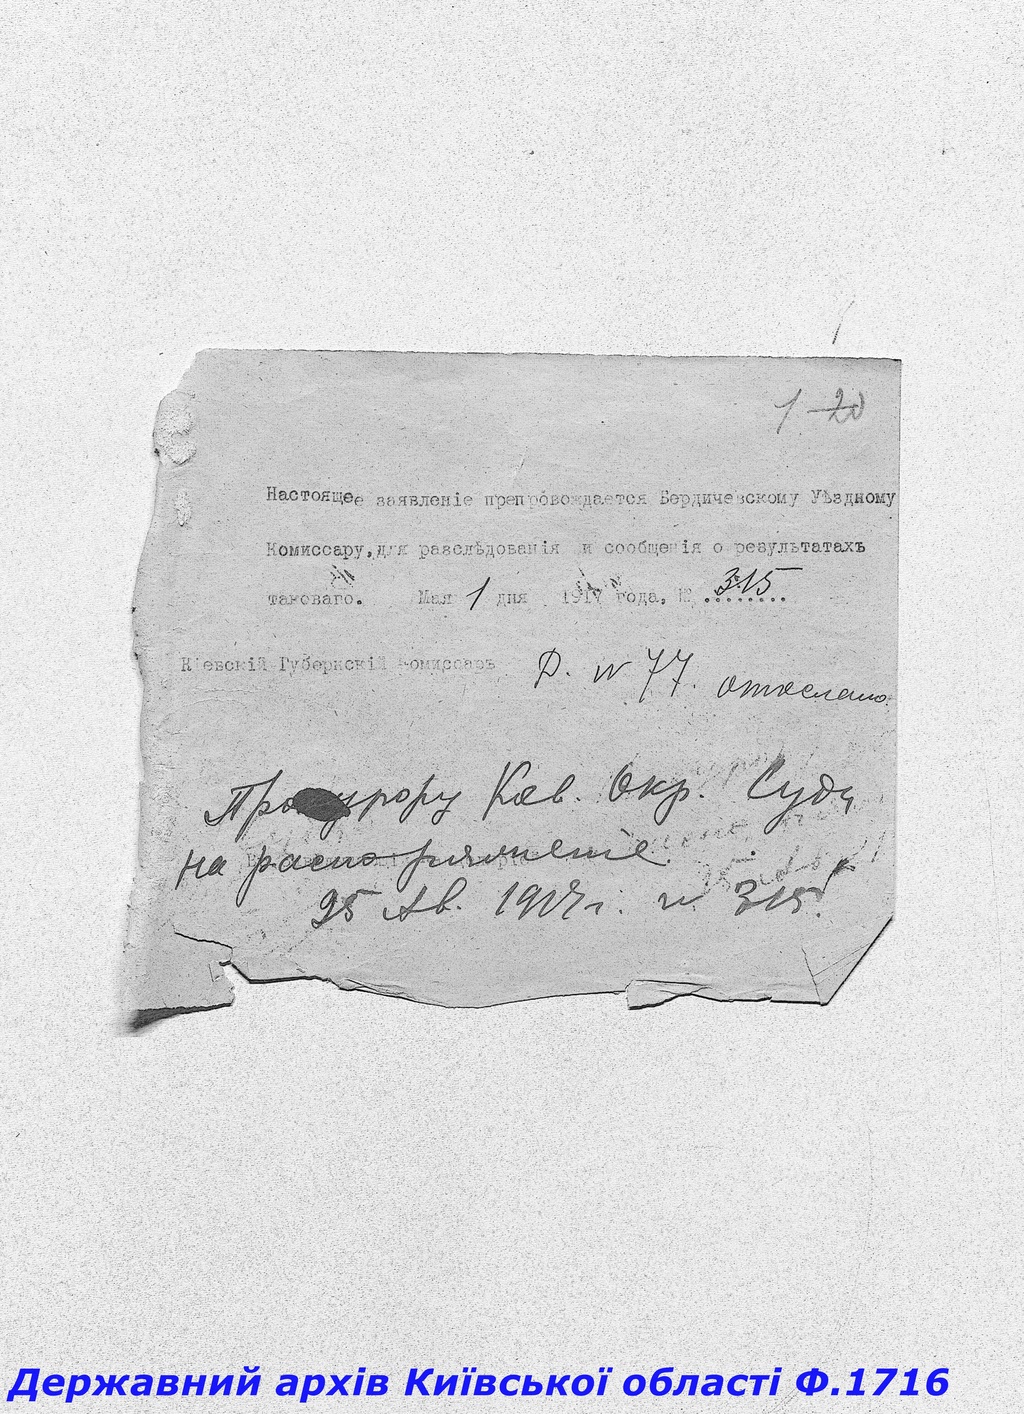 1 20
Настоящее заявленіе препровождается Бердичевскому Уѣздному
Комиссару, для разслѣдованія и сообщенія о результатахъ
таковаго. Мая 1 дня 1917 года, № 315
Кіевскій Губернскій Комиссаръ
Д. № 77. отослано.
Прокурору Кіев. Окр. Суда
на распоряженіе.
25 Ав. 1917 г. № 315.
Державний архів Київської області Ф.1716